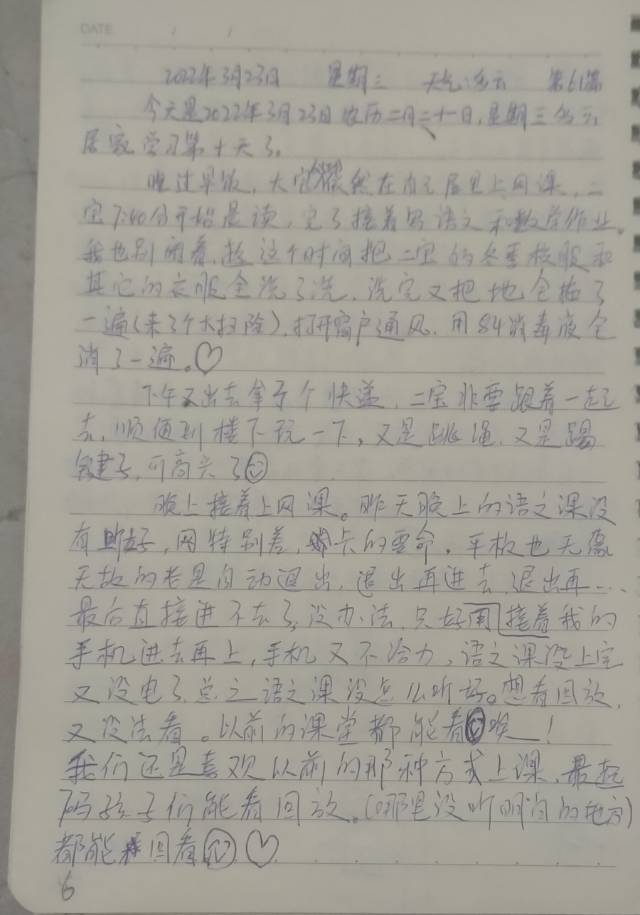 DATE / /
2022年3月23日 星期三 天气:多云 第61篇
今天是2022年3月23日农历二月二十一日,星期三多云,
居家学习第十天了。
吃过早饭,大宝依然在自己屋里上网课,二
宝7:40分开始晨读,完了接着写语文和数学作业。
我也别闲着,趁这个时间把二宝的冬季校服和
其它的衣服全洗了洗,洗完又把地全拖了
一遍(来了个大扫除),打开窗户通风,用84消毒液全
消了一遍。♡
下午又出去拿了个快递,二宝非要跟着一起
去,顺便到楼下玩一下,又是跳绳,又是踢
毽子,可高兴了
晚上接着上网课。昨天晚上的语文课没
有听好,网特别差,卡的要命,平板也无缘
无故的老是自动退出,退出再进去,退出再…
最后直接进不去了,没办法,只好用接着我的
手机进去再上,手机又不给力,语文课没上完
又没电了,总之语文课没怎么听好。想看回放,
又没法看。以前的课堂都能看唉!
我们还是喜欢以前的那种方式上课,最起
码孩子们能看回放。(哪里没听明白的地方)
都能回看♡
6